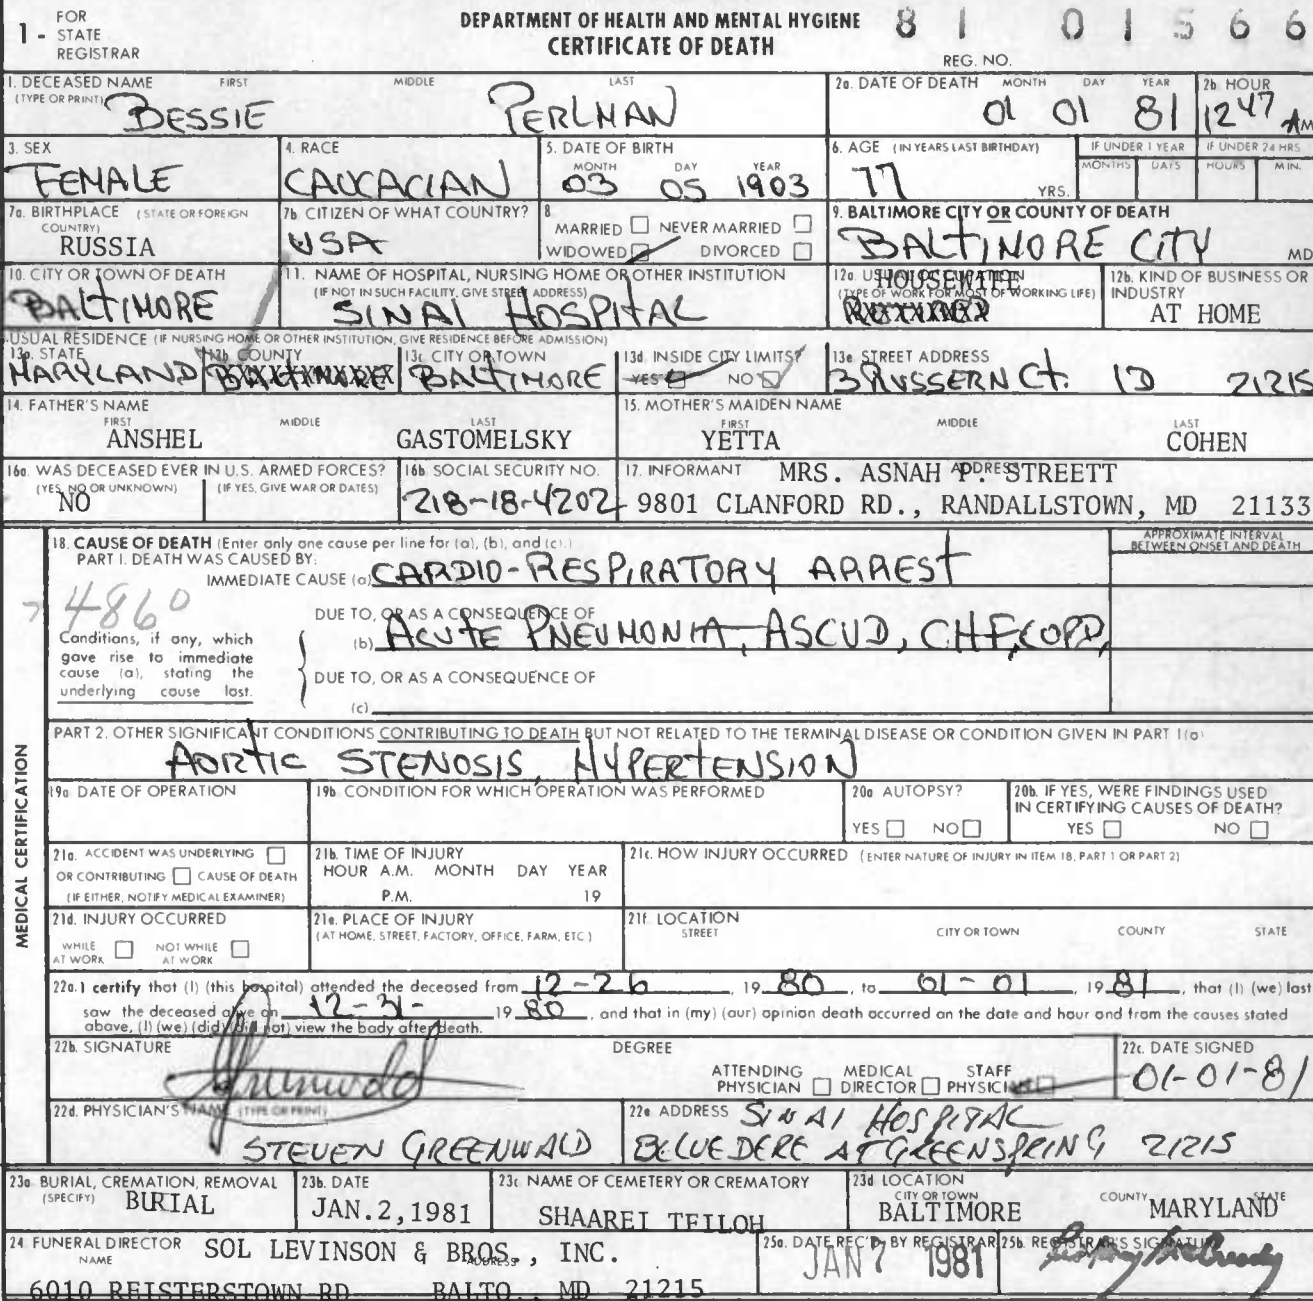 1 - FOR STATE REGISTRAR
DEPARTMENT OF HEALTH AND MENTAL HYGIENE
CERTIFICATE OF DEATH
81 01566
REG. NO.
1. DECEASED NAME FIRST MIDDLE LAST
(TYPE OR PRINT) BESSIE PERLMAN
2a. DATE OF DEATH MONTH DAY YEAR
01 01 81
2b HOUR
12 47 AM
3. SEX
FEMALE
4. RACE
CAUCACIAN
5. DATE OF BIRTH
MONTH DAY YEAR
03 05 1903
6. AGE (IN YEARS LAST BIRTHDAY)
77 YRS.
IF UNDER 1 YEAR
MONTHS DAYS
IF UNDER 24 HRS.
HOURS MIN.
7a. BIRTHPLACE (STATE OR FOREIGN COUNTRY)
RUSSIA
7b CITIZEN OF WHAT COUNTRY?
USA
8
MARRIED NEVER MARRIED
WIDOWED DIVORCED
9. BALTIMORE CITY OR COUNTY OF DEATH
BALTIMORE CITY MD
10. CITY OR TOWN OF DEATH
BALTIMORE
11. NAME OF HOSPITAL, NURSING HOME OR OTHER INSTITUTION
(IF NOT IN SUCH FACILITY, GIVE STREET ADDRESS)
SINAI HOSPITAL
12a. USUAL OCCUPATION
HOUSEWIFE
(TYPE OF WORK FOR MOST OF WORKING LIFE)
12b. KIND OF BUSINESS OR INDUSTRY
AT HOME
USUAL RESIDENCE (IF NURSING HOME OR OTHER INSTITUTION, GIVE RESIDENCE BEFORE ADMISSION)
13a. STATE
MARYLAND
13b COUNTY
BALTIMORE
13c CITY OR TOWN
BALTIMORE
13d INSIDE CITY LIMITS?
YES NO
13e STREET ADDRESS
3 RUSSERN Ct. 1D 21215
14. FATHER'S NAME
FIRST MIDDLE LAST
ANSHEL GASTOMELSKY
15. MOTHER'S MAIDEN NAME
FIRST MIDDLE LAST
YETTA COHEN
16a. WAS DECEASED EVER IN U.S. ARMED FORCES?
(YES, NO OR UNKNOWN) (IF YES, GIVE WAR OR DATES)
NO
16b SOCIAL SECURITY NO.
218-18-4202
17. INFORMANT ADDRESS
MRS. ASNAH P. STREETT
9801 CLANFORD RD., RANDALLSTOWN, MD 21133
MEDICAL CERTIFICATION
18. CAUSE OF DEATH (Enter only one cause per line for (a), (b), and (c).)
APPROXIMATE INTERVAL BETWEEN ONSET AND DEATH
PART I. DEATH WAS CAUSED BY:
IMMEDIATE CAUSE (a) CARDIO-RESPIRATORY ARREST
4860
Conditions, if any, which gave rise to immediate cause (a), stating the underlying cause last.
DUE TO, OR AS A CONSEQUENCE OF
(b) ACUTE PNEUMONIA, ASCVD, CHF, COPD,
DUE TO, OR AS A CONSEQUENCE OF
(c)
PART 2. OTHER SIGNIFICANT CONDITIONS CONTRIBUTING TO DEATH BUT NOT RELATED TO THE TERMINAL DISEASE OR CONDITION GIVEN IN PART 1(a)
AORTIC STENOSIS, HYPERTENSION
19a DATE OF OPERATION
19b CONDITION FOR WHICH OPERATION WAS PERFORMED
20a AUTOPSY?
YES NO
20b. IF YES, WERE FINDINGS USED IN CERTIFYING CAUSES OF DEATH?
YES NO
21a. ACCIDENT WAS UNDERLYING
OR CONTRIBUTING CAUSE OF DEATH
(IF EITHER, NOTIFY MEDICAL EXAMINER)
21b. TIME OF INJURY
HOUR A.M. MONTH DAY YEAR
P.M. 19
21c. HOW INJURY OCCURRED (ENTER NATURE OF INJURY IN ITEM 18, PART 1 OR PART 2)
21d. INJURY OCCURRED
WHILE AT WORK NOT WHILE AT WORK
21e. PLACE OF INJURY
(AT HOME, STREET, FACTORY, OFFICE, FARM, ETC.)
21f LOCATION
STREET CITY OR TOWN COUNTY STATE
22a. I certify that (I) (this hospital) attended the deceased from 12-26, 19 80, to 01-01, 19 81, that (I) (we) last
saw the deceased alive on 12-31- 19 80, and that in (my) (our) opinion death occurred on the date and hour and from the causes stated
above, (I) (we) (did) (did not) view the body after death.
22b. SIGNATURE
DEGREE
ATTENDING PHYSICIAN MEDICAL DIRECTOR STAFF PHYSICIAN
22c. DATE SIGNED
01-01-81
22d. PHYSICIAN'S NAME (TYPE OR PRINT)
STEVEN GREENWALD
22e ADDRESS
SINAI HOSPITAL
BELVEDERE AT GREENSPRING 21215
23a BURIAL, CREMATION, REMOVAL
(SPECIFY) BURIAL
23b. DATE
JAN.2,1981
23c NAME OF CEMETERY OR CREMATORY
SHAAREI TFILOH
23d LOCATION
CITY OR TOWN COUNTY STATE
BALTIMORE MARYLAND
24 FUNERAL DIRECTOR
NAME ADDRESS
SOL LEVINSON & BROS., INC.
6010 REISTERSTOWN RD BALTO., MD 21215
25a. DATE REC'D. BY REGISTRAR
JAN 7 1981
25b. REGISTRAR'S SIGNATURE